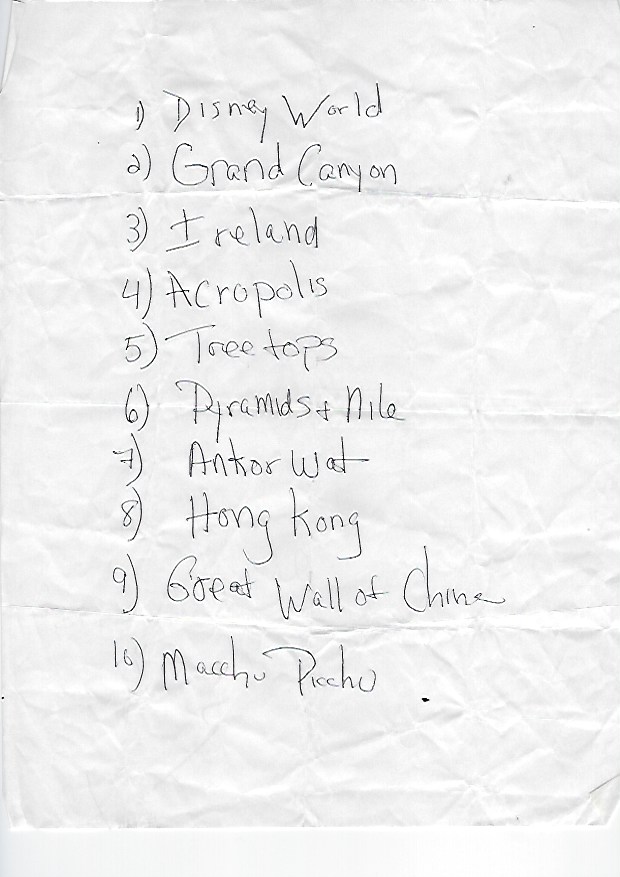 1) Disney World
2) Grand Canyon
3) Ireland
4) Acropolis
5) Tree tops
6) Pyramids + Nile
7) Ankor Wat
8) Hong Kong
9) Great Wall of China
10) Macchu Picchu